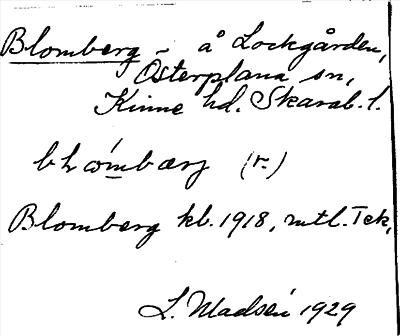 Blomberg - å Lockgården,
Österplana sn,
Kinne hd. Skarab. l.
bḷómbærj (r.)
Blomberg kb. 1918, mtl. Tek,
L. Madsén 1929